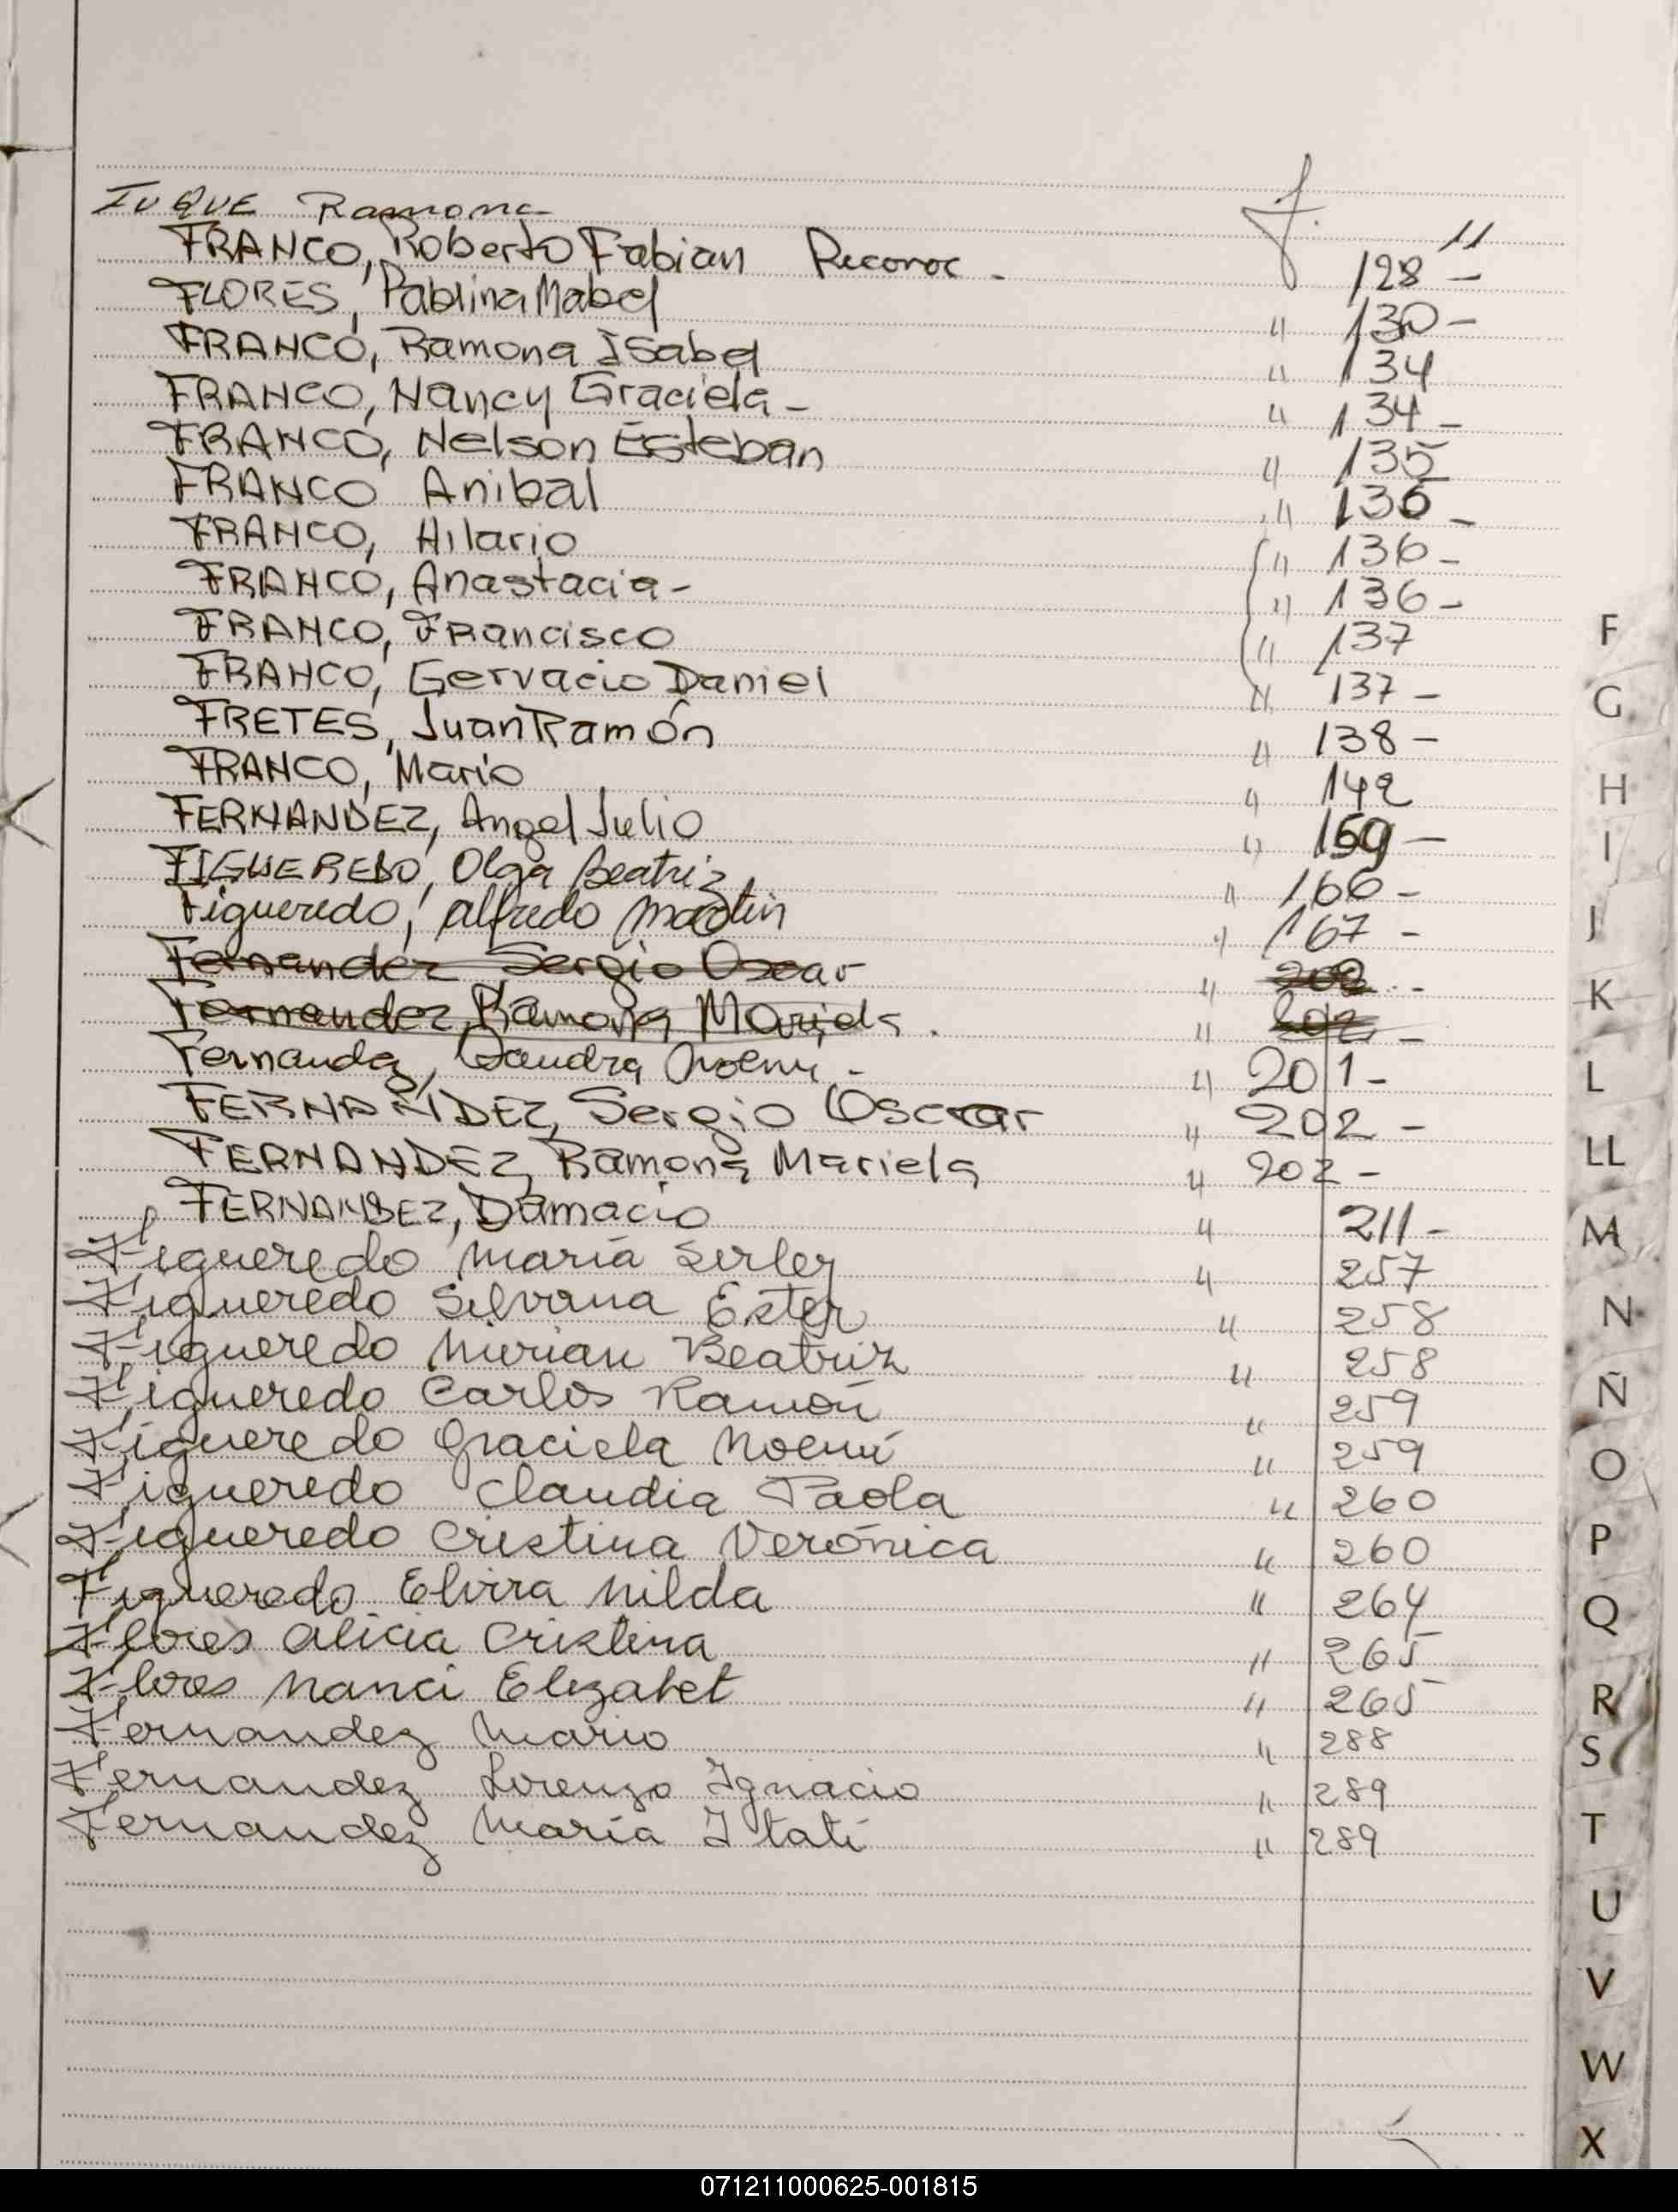 Ramona f. 11
FRANCO, Roberto Fabian Reconoc. 128 -
FLORES, Pablina Mabel " 130 -
FRANCO, Ramona Isabel " 134
FRANCO, Nancy Graciela - " 134 -
FRANCO, Nelson Esteban " 135
FRANCO Anibal " 136 -
FRANCO, Hilario " 136 -
FRANCO, Anastacia - " 136 -
FRANCO, Francisco " 137
FRANCO, Gervacio Daniel " 137 -
FRETES, Juan Ramón " 138 -
FRANCO, Mario " 142
FERNANDEZ, Angel Julio " 159 -
FIGUEREDO, Olga Beatriz " 166 -
Figueredo, Alfredo Martin " 167 -
Fernandez Sergio Oscar " 202 -
Fernandez, Ramona Mariela. " 202 -
Fernandez, Sandra Noemi - " 201 -
FERNANDEZ, Sergio Oscar " 202 -
FERNANDEZ, Ramona Mariela " 202 -
FERNANDEZ, Damacio " 211 -
Figueredo Maria Serley " 257
Figueredo Silvana Ester " 258
Figueredo Mirian Beatriz " 258
Figueredo Carlos Ramón " 259
Figueredo Graciela Noemí " 259
Figueredo Claudia Paola " 260
Figueredo Cristina Verónica " 260
Figueredo Elvira Nilda " 264
Flores Alicia Cristina " 265
Flores Nanci Elizabet " 265
Fernandez Mario " 288
Fernandez Lorenzo Ignacio " 289
Fernandez María Itatí " 289
F
G
H
I
J
K
L
LL
M
N
Ñ
O
P
Q
R
S
T
U
V
W
X
071211000625-001815